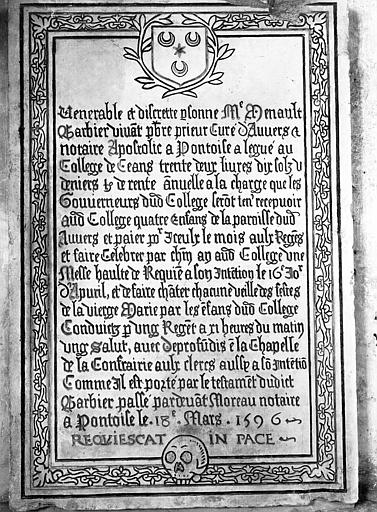 Venerable et discrette psonne Me Menault
Barbier vivāt pbre prieur Cure d'Auvers &
notaire Apostolic a Pontoise a legue au
College de Ceans trente deux livres dix solz v
deniers t de rente ānuelle a la charge que les
Gouverneurs dud College serōt ten' recepvoir
aud College quatre ēnfans de la paroisse dud
Auvers et paier pr Iceulx le mois aulx Regēs
et faire Celebrer par chūn an aud College une
Messe haulte de Requiē a son Intētion le 16e Ior
d'Apuril, et de faire chāter chacune veille des festes
de la vierge Marie par les ēfans dud College
Conduitz p ung Regēt a vi heures du matin
ung Salut, avec Deprofūdis ē la Chapelle
de la Confrairie aulx clercs aussy a sō Intētiō
Comme Il est porté par le testament dudict
Barbier passé pardevāt Moreau notaire
a Pontoise le 18e Mars 1596
REQVIESCAT IN PACE